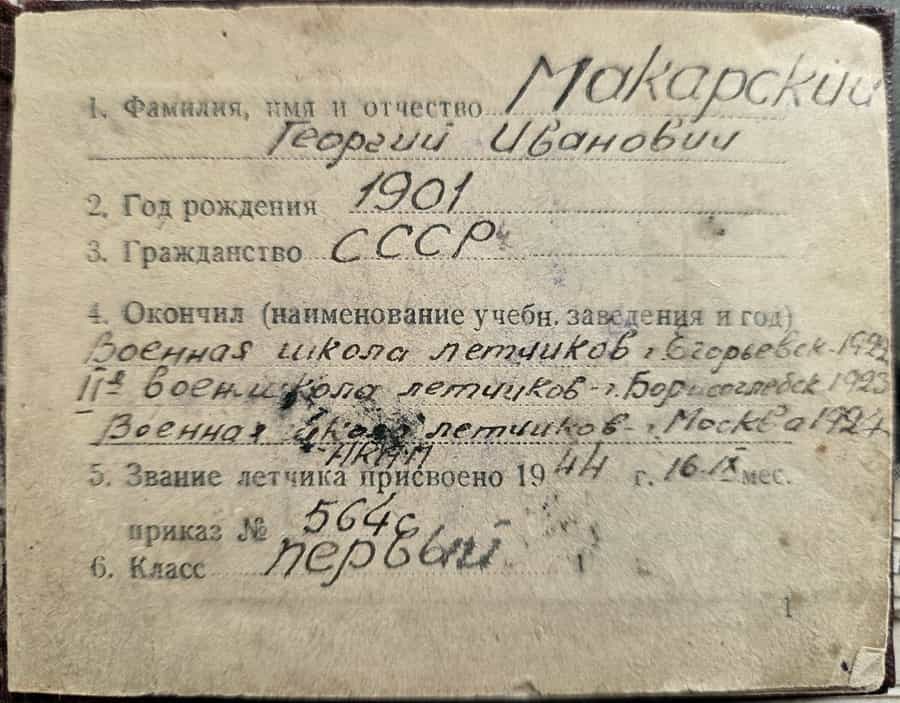 1. Фамилия, имя и отчество Макарский
Георгий Иванович
2. Год рождения 1901
3. Гражданство СССР
4. Окончил (наименование учебн. заведения и год)
Военная школа летчиков г. Егорьевск-1922
IIя воен.школа летчиков-г. Борисоглебск 1923
Военная школа летчиков-г. Москва 1924
5. Звание летчика присвоено 1944 г. 16.IX мес.
приказ № 564с
6. Класс первый
1